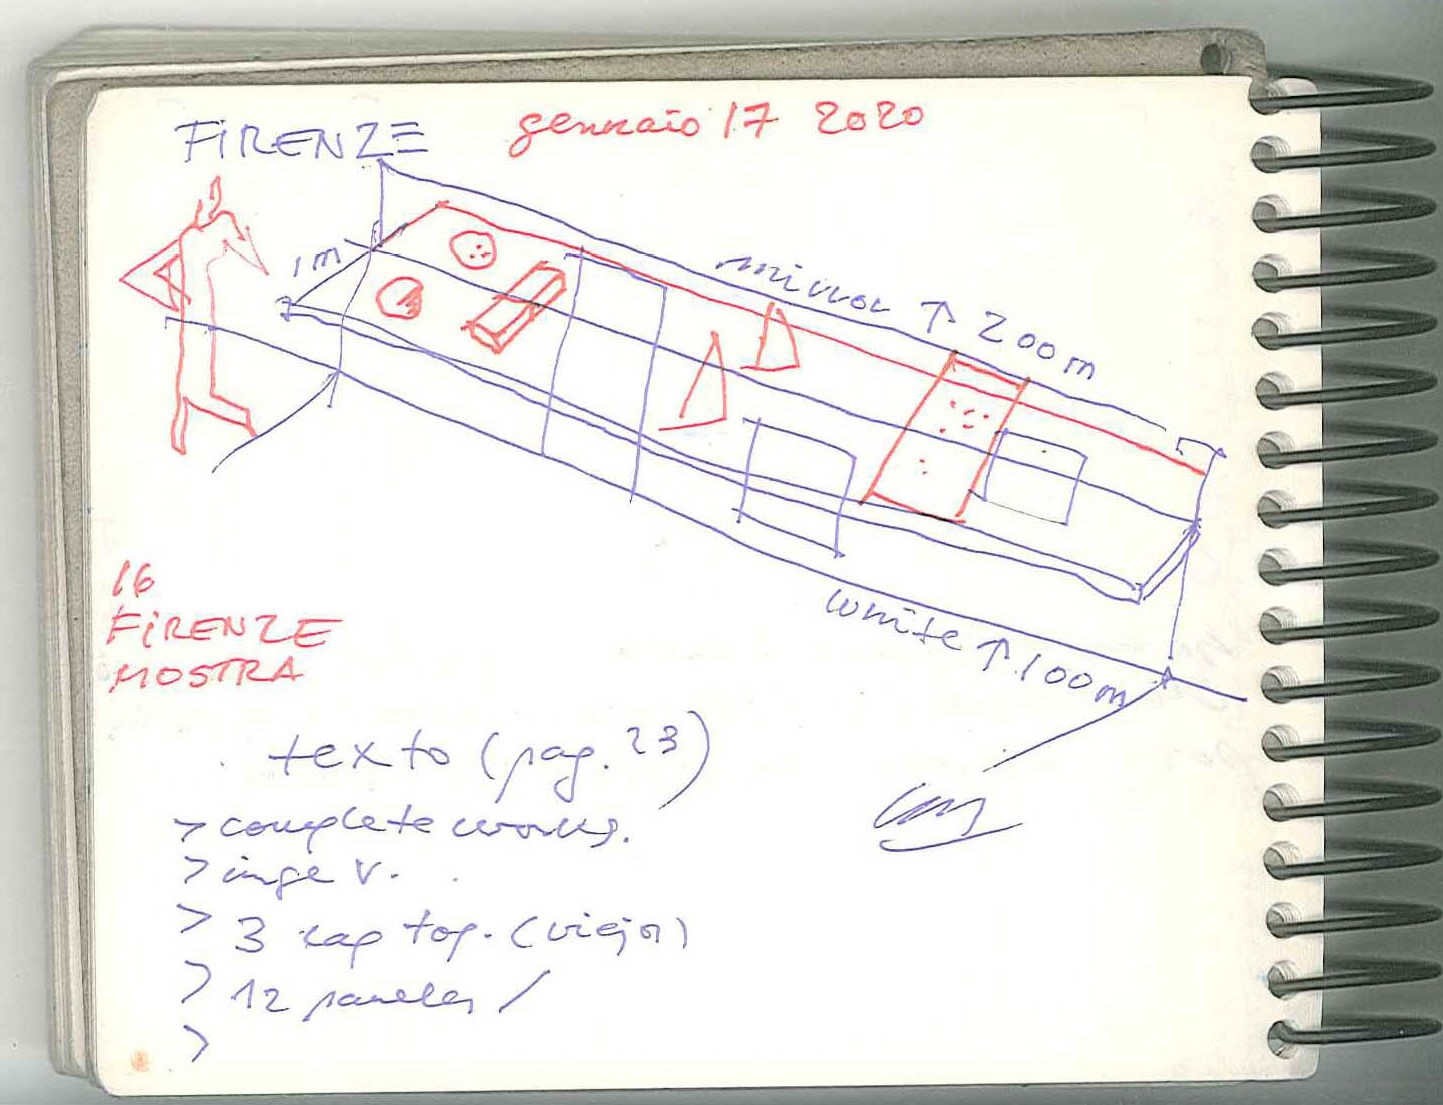 FIRENZE gennaio 17 2020
1m
mirror ↑ 200m
white ↑ 100m
16
FIRENZE
MOSTRA
texto (pag. 23)
> complete works.
> inge v.
> 3 lap top. (viejo)
> 12 paneles /
>